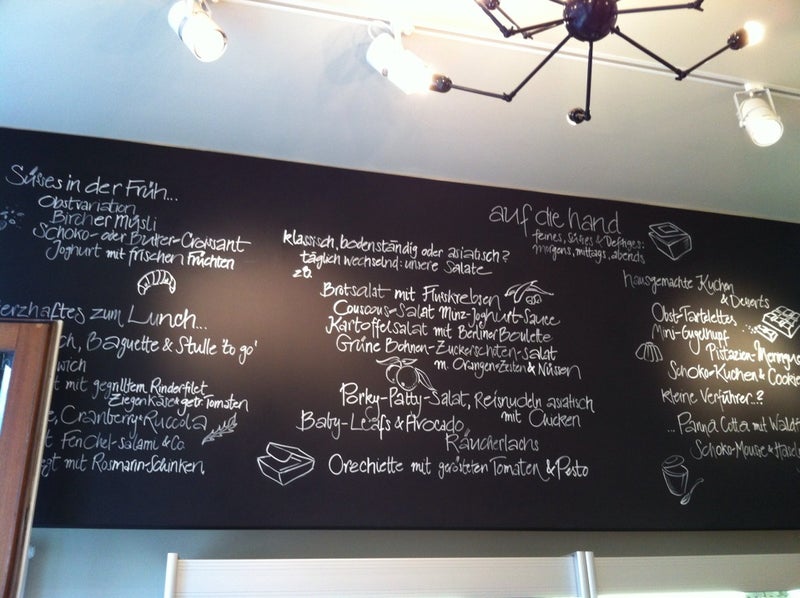 Süsses in der Früh...
Obstvariation
Bircher Müsli
Schoko- oder Butter-Croissant
Joghurt mit frischen Früchten
Herzhaftes zum Lunch...
Baguette & Stulle 'to go'
mit gegrilltem Rinderfilet
Ziegenkäse & getr. Tomaten
Cranberry & Ruccola
Fenchel-Salami & Co.
mit Rosmarin-Schinken
auf die hand
feines, süsses & Deftiges:
morgens, mittags, abends
klassisch, bodenständig oder asiatisch?
täglich wechselnd: unsere Salate
z.B.
Brotsalat mit Flusskrebsen
Couscous-Salat Minz-Joghurt-Sauce
Kartoffelsalat mit Berliner Boulette
Grüne Bohnen-Zuckerschoten-Salat
m. Orangen-Zesten & Nüssen
Porky-Patty-Salat, Reisnudeln asiatisch
mit Chicken
Baby-Leafs & Avocado
Räucherlachs
Orechiette mit gerösteten Tomaten & Pesto
hausgemachte Kuchen
& Desserts
Obst-Tartelettes
Mini-Gugelhupf
Pistazien-Meringue
Schoko-Kuchen & Cookie
kleine Verführer..?
...Panna Cotta mit Waldf
Schoko-Mousse & Hasel